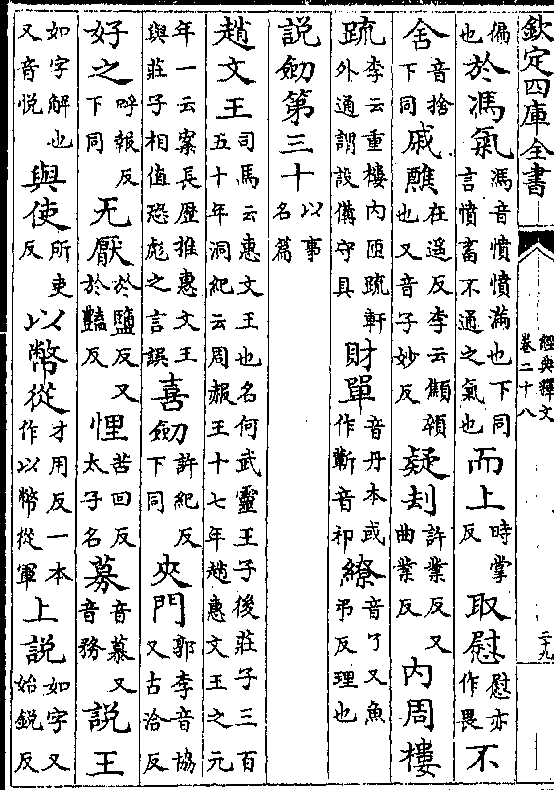 欽定四庫全書
經典釋文
卷二十八
二十九
偏也於馮氣馮音憤憤滿也下同言憤畜不通之氣也而上時掌反取慰慰亦作畏不
舍音捨下同戚醮在遥反李云顦顇也又音子妙反疑刦許業反又曲業反內周樓
疏李云重樓內匝疏軒外通謂設備守具財單音丹本或作蘄音祁繚音了又魚弔反理也
說劒第三十以事名篇
趙文王司馬云惠文王也名何武靈王子後莊子三百五十年洞紀云周赧王十七年趙惠文王之元
年一云案長歷推惠文王與莊子相值恐彪之言誤喜劒許紀反下同夾門郭李音協又古洽反
好之呼報反下同无厭於鹽反又於豔反悝苦回反太子名募音慕又音務說王
如字解也又音悅與使所吏反以幣從才用反一本作以幣從軍上說如字又始銳反